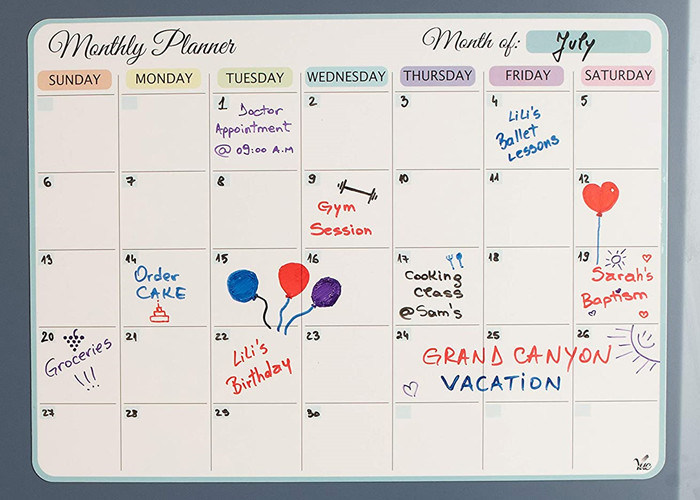 Monthly Planner
Month of: July
SUNDAY MONDAY TUESDAY WEDNESDAY THURSDAY FRIDAY SATURDAY
1 Doctor
Appointment
@ 09:00 A.M
2
3
4
LiLi's
Ballet
Lessons
5
6
7
8
9
Gym
Session
10
11
12
13
14
Order
CAKE
15
16
17
Cooking
Class
@Sam's
18
19
Sarah's
Baptism
20
Groceries
!!!
21
22
LiLi's
Birthday
23
24
25
26
GRAND CANYON
VACATION
27
28
29
30